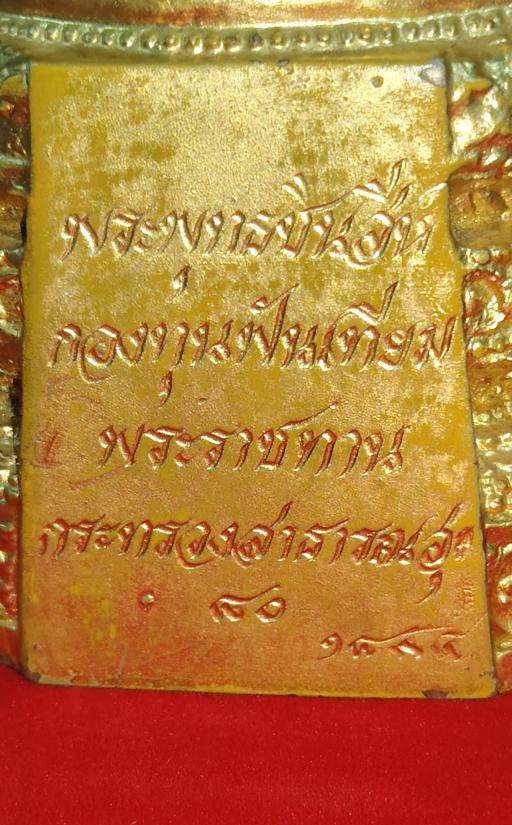 พระพุทธชินสีห์
กองทุนฟันเทียม
พระราชทาน
กระทรวงสาธารณสุข
๘๐